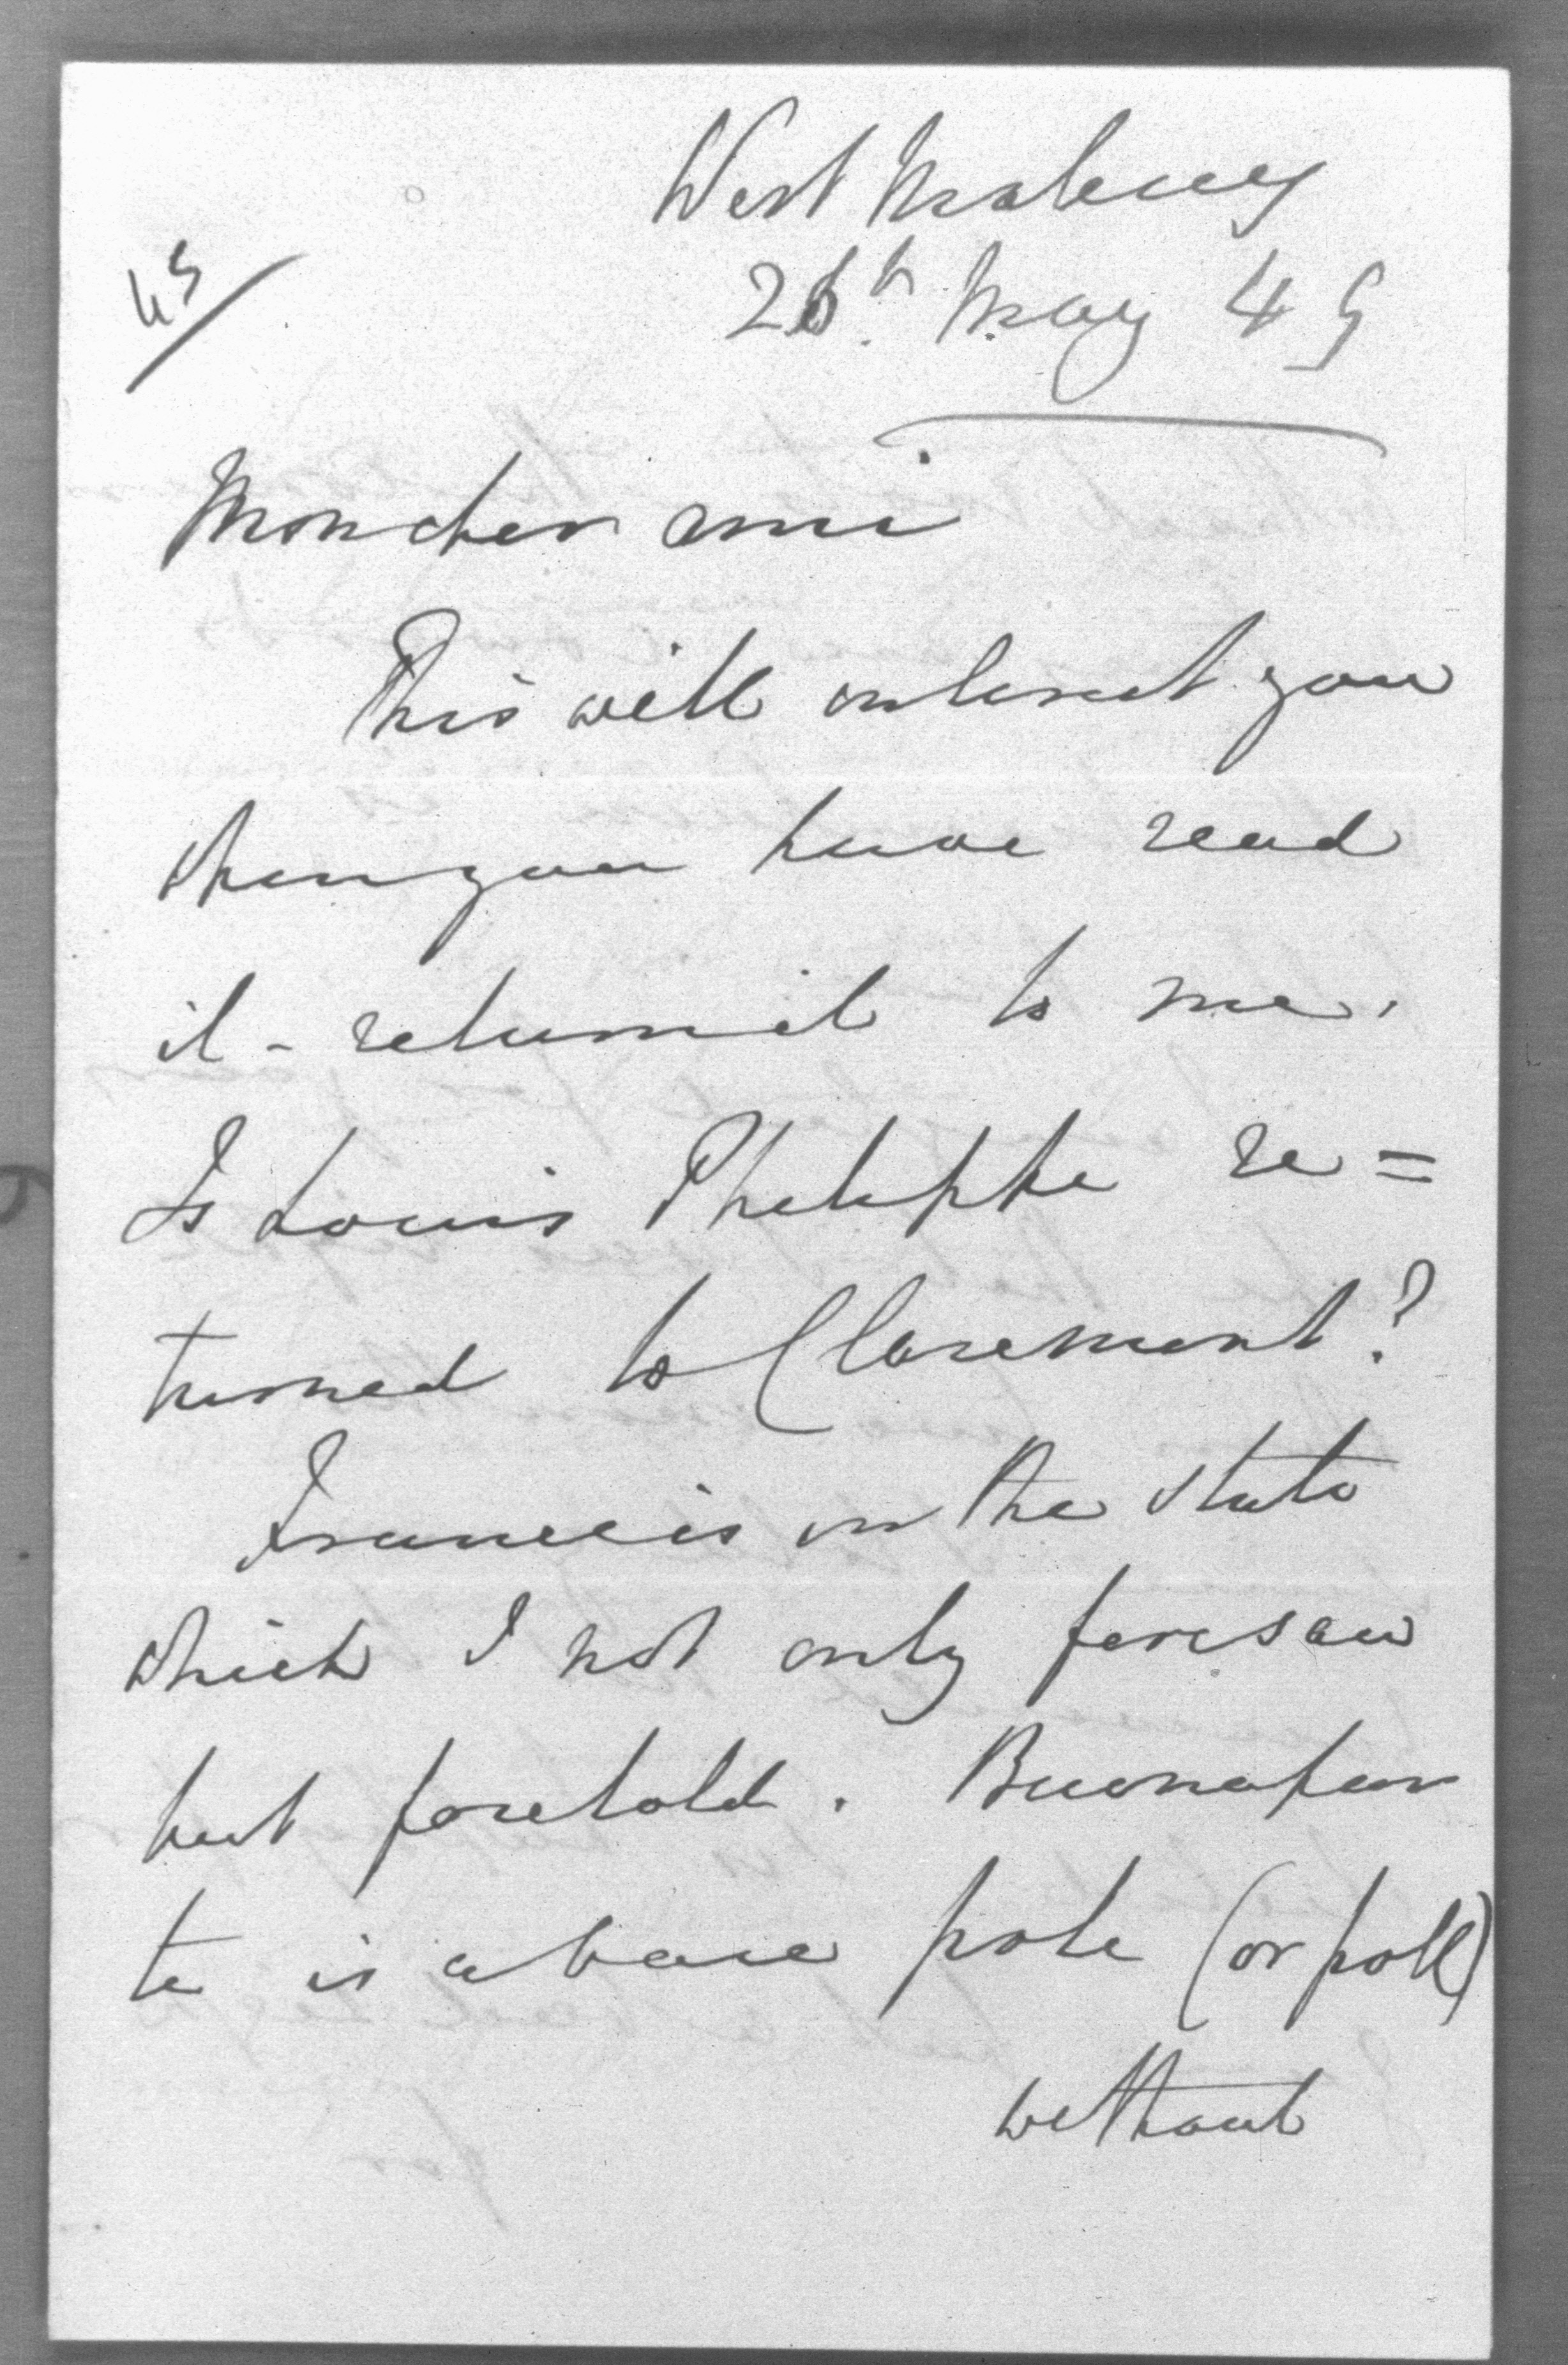 West Molesey
26th May 49
45
Mon cher ami
This will interest you
when you have read
it - return it to me.
Is Louis Philippe re=
turned to Claremont?
France is in the state
which I not only foresaw
but foretold. Buonapar
te is a bare pole (or poll)
without